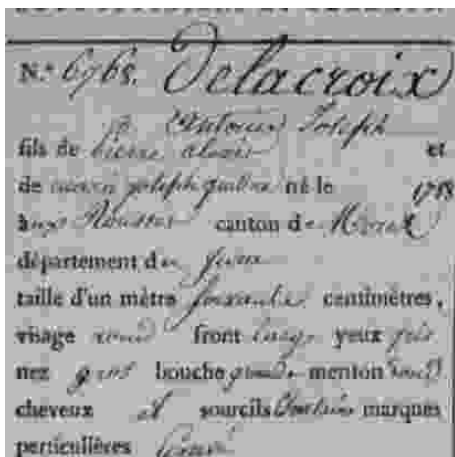 N.º 6965. Delacroix
Antoine Joseph
fils de pierre alexis et
de marie joseph né le
aux Rousses canton de
département du Jura
taille d'un mètre soixante centimètres,
visage rond front large yeux gris
nez gros bouche grande menton rond
cheveux et sourcils marques
particulières Gravé